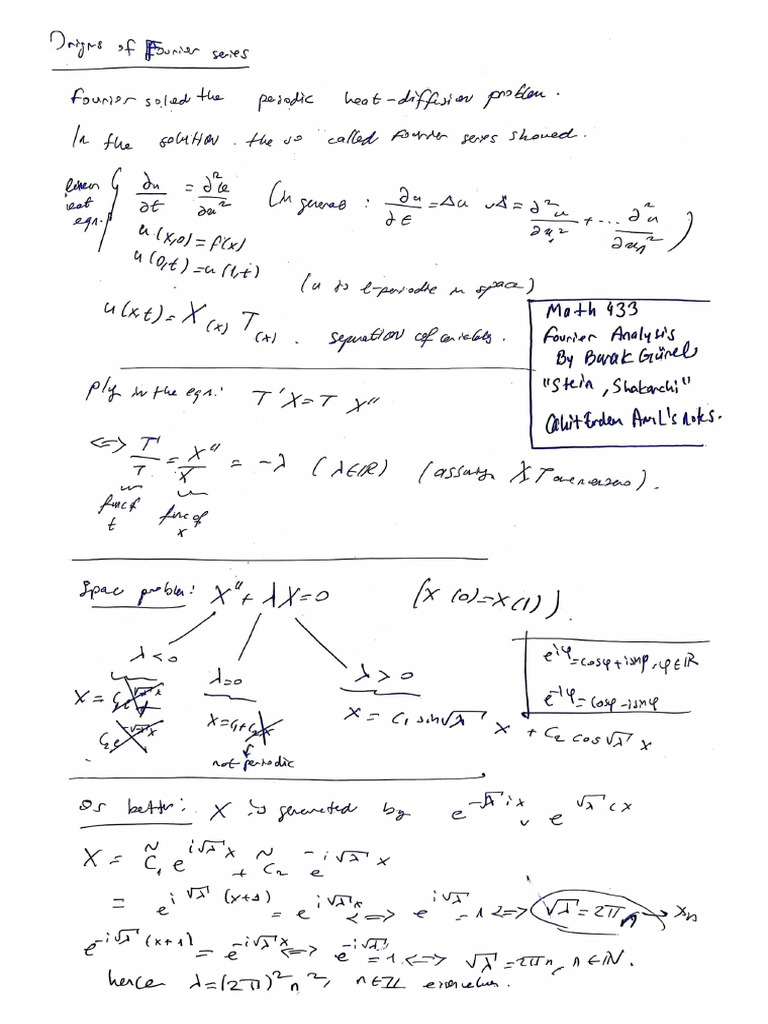 Origns of Fourier series
Fourier solved the periodic heat-diffusion problem.
In the solution, the so called Fourier series showed.
linear heat eqn. { ∂u/∂t = ∂²u/∂x² (In general : ∂u/∂t = Δu, Δ = ∂²u/∂x₁² + ... ∂²u/∂xₙ²)
u(x,0) = f(x)
u(0,t) = u(1,t)
(u is 1-periodic in space)
u(x,t) = X(x) T(x). separation of variables.
Math 433
Fourier Analysis
By Burak Gürel
"Stein, Shakarchi"
Cahit Erden Anıl's notes.
Plug in the eqn.: T'X = T X"
<=> T'/T = X"/X = -λ (λ∈ℝ) (assuming X, T are nonzero).
func of t func of x
Space problem: X" + λX = 0 (X(0) = X(1)).
λ<0 λ=0 λ>0
e^{iφ} = cosφ + isinφ, φ∈ℝ
e^{-iφ} = cosφ - isinφ
X = C₁e^{√-λ x}
C₂e^{-√-λ x}
X = C₁ + C₂x
not periodic
X = C₁ sin√λ x + C₂ cos√λ x
Or better: X is generated by e^{-√λ ix}, e^{√λ ix}
X = C̃₁ e^{i√λ x} + C̃₂ e^{-i√λ x}
= e^{i√λ (x+1)} = e^{i√λ x} <=> e^{i√λ} = 1 <=> √λ = 2πn → Xₙ
e^{-i√λ (x+1)} = e^{-i√λ x} <=> e^{-i√λ} = 1 <=> √λ = 2πn, n∈ℕ.
hence λ = (2π)²n², n∈ℤ eigenvalues.